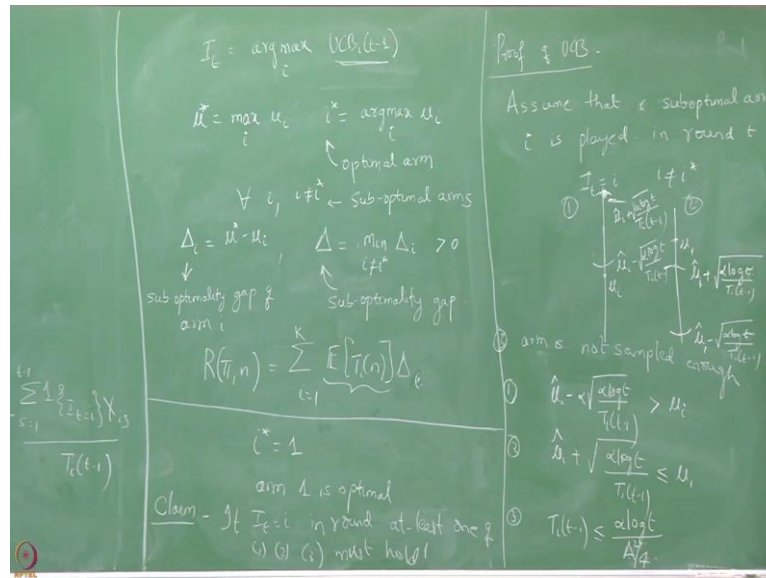 t-1
∑ 1{I_t=i} X_is
s=1
T_i(t-1)
I_t = argmax_i UCB_i(t-1)
μ* = max_i μ_i i* = argmax_i μ_i
optimal arm
∀ i, i≠i* ← sub-optimal arms
Δ_i = μ* - μ_i Δ = min_{i≠i*} Δ_i > 0
suboptimality gap of arm i
sub-optimality gap
R(π,n) = ∑_{i=1}^{K} E[T_i(n)] Δ_i
i* = 1
arm 1 is optimal
Claim - If I_t=i in round at-least one of
(1) (2) (3) must hold!
Proof of UCB.
Assume that a suboptimal arm
i is played in round t
I_t = i i≠i*
① ②
μ̂_i + √(αlogt/T_i(t-1))
μ̂_i - √(αlogt/T_i(t-1))
μ_i
μ_1
μ̂_1 + √(αlogt/T_1(t-1))
μ̂_1 - √(αlogt/T_1(t-1))
③ arm is not sampled enough
① μ̂_i - α√(αlogt/T_i(t-1)) > μ_i
② μ̂_1 + √(αlogt/T_1(t-1)) ≤ μ_1
③ T_i(t-1) ≤ αlogt/(Δ²/4)
NPTEL